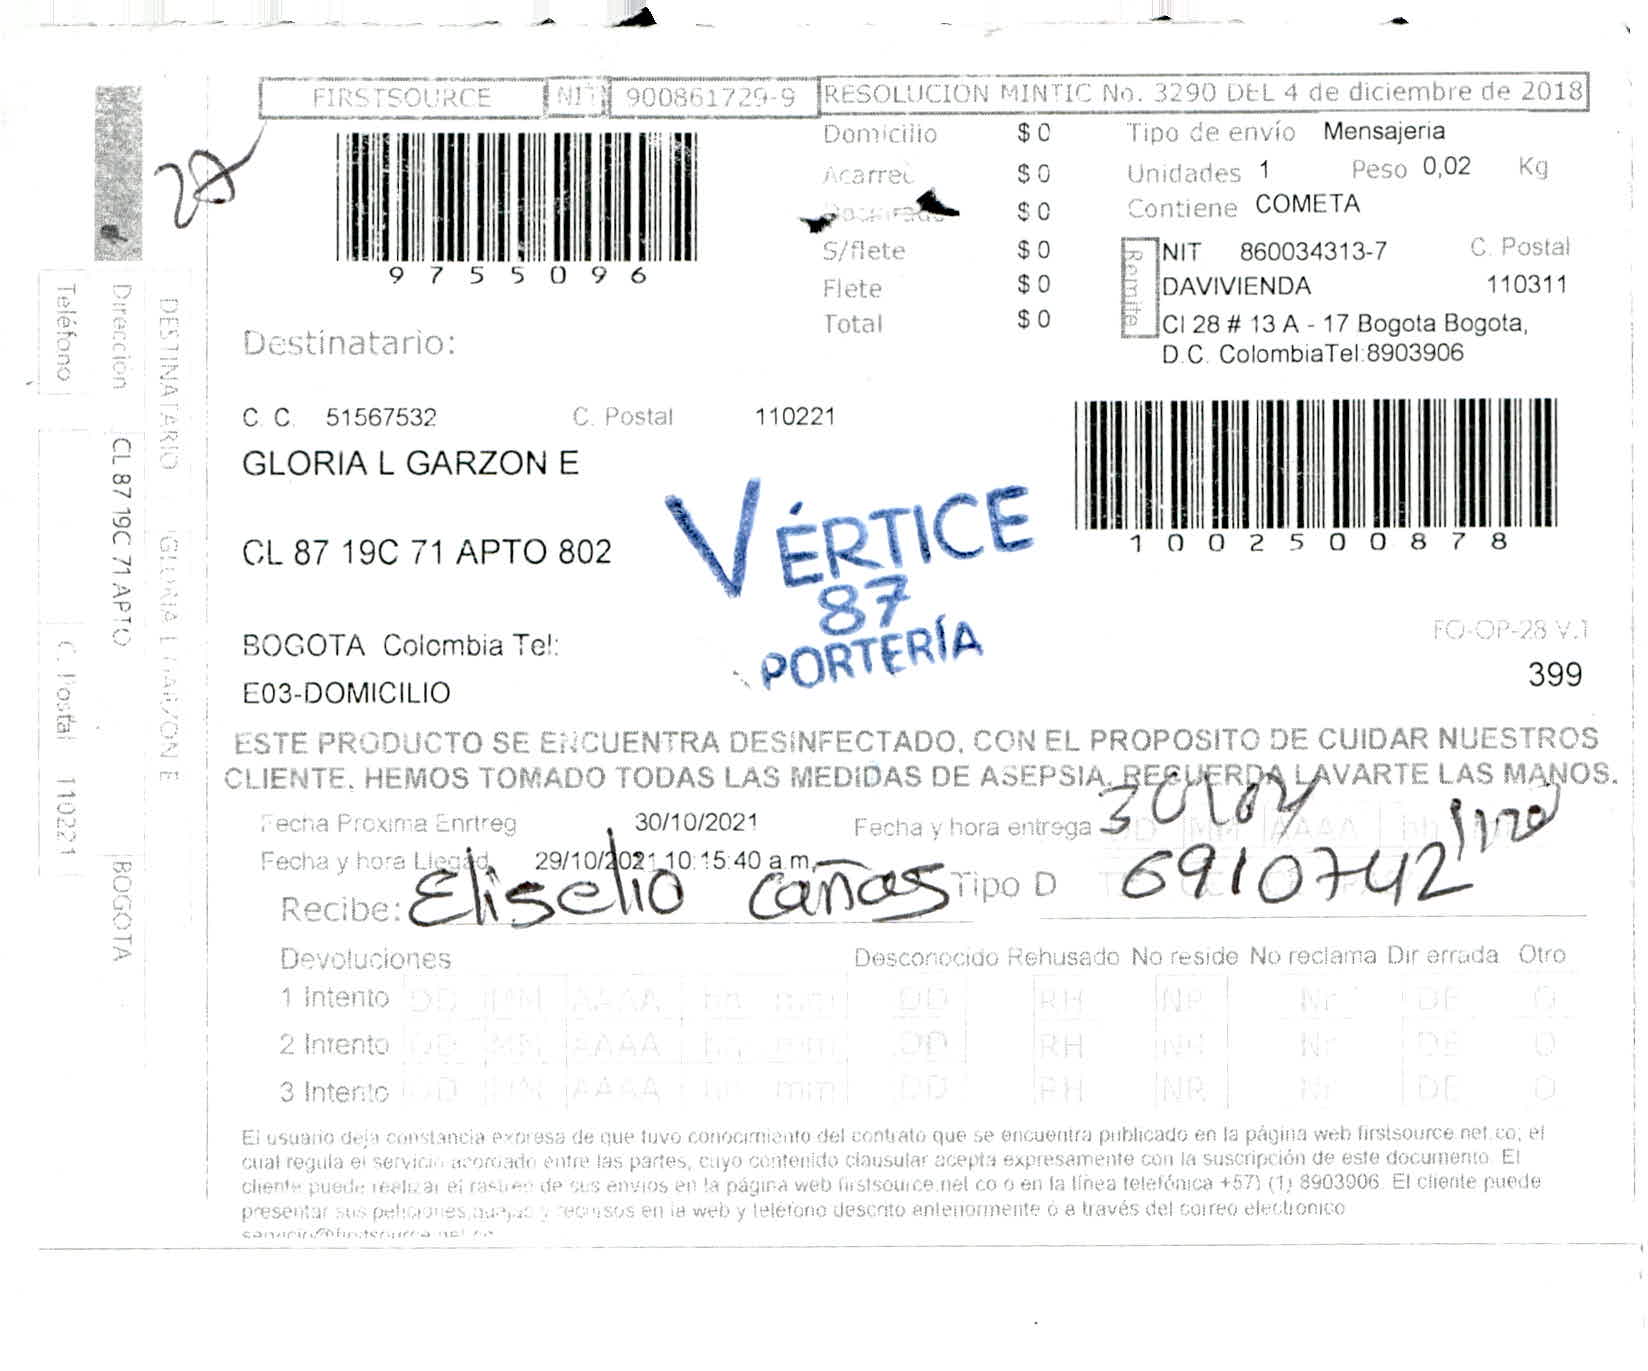 FIRSTSOURCE NIT 900861729-9 RESOLUCION MINTIC No. 3290 DEL 4 de diciembre de 2018
9755096
Domicilio $ 0
Acarreo $ 0
$ 0
S/flete $ 0
Flete $ 0
Total $ 0
Tipo de envío Mensajeria
Unidades 1 Peso 0,02 Kg
Contiene COMETA
Remite
NIT 860034313-7 C. Postal
DAVIVIENDA 110311
Cl 28 # 13 A - 17 Bogota Bogota,
D.C. ColombiaTel:8903906
Destinatario:
C. C. 51567532 C. Postal 110221
GLORIA L GARZON E
CL 87 19C 71 APTO 802
BOGOTA Colombia Tel:
E03-DOMICILIO
VÉRTICE
87
PORTERÍA
1002500878
FO-OP-28 V.1
399
ESTE PRODUCTO SE ENCUENTRA DESINFECTADO, CON EL PROPOSITO DE CUIDAR NUESTROS
CLIENTE. HEMOS TOMADO TODAS LAS MEDIDAS DE ASEPSIA. RECUERDA LAVARTE LAS MANOS.
Fecha Proxima Enrtreg 30/10/2021 Fecha y hora entrega
Fecha y hora Llegad 29/10/2021 10:15:40 a.m.
Recibe: Eliselio cañas Tipo D 6910742
Devoluciones Desconocido Rehusado No reside No reclama Dir errada Otro
1 Intento DD MM AAAA hh mm DD RH NR Nr DE O
2 Intento DD MM AAAA hh mm DD RH NR Nr DE O
3 Intento DD MM AAAA hh mm DD RH NR Nr DE O
El usuario deja constancia expresa de que tuvo conocimiento del contrato que se encuentra publicado en la página web firstsource.net.co; el
cual regula el servicio acordado entre las partes, cuyo contenido clausular acepta expresamente con la suscripción de este documento. El
cliente puede realizar el rastreo de sus envios en la página web firstsource.net.co o en la línea telefónica +57) (1) 8903906. El cliente puede
presentar sus peticiones,quejas y recursos en la web y teléfono descrito anteriormente o a través del correo electronico
servicio@firstsource.net.co
DESTINATARIO GLORIA L GARZON E
Dirección CL 87 19C 71 APTO BOGOTA
Teléfono C. Postal 110221